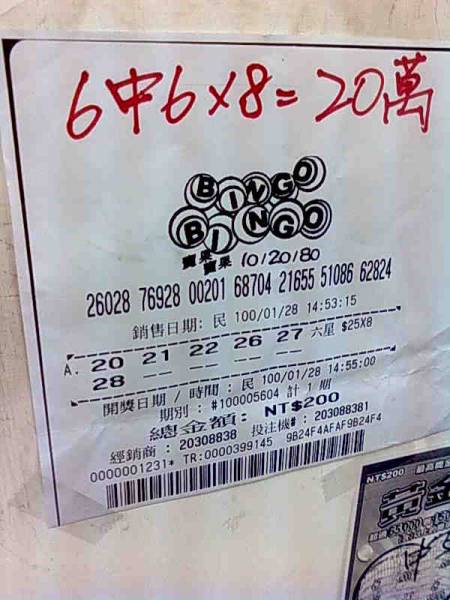 6中6×8=20萬
BINGO
BINGO
賓果
賓果 10/20/80
26028 76928 00201 68704 21655 51086 62824
銷售日期: 民 100/01/28 14:53:15
A. 20 21 22 26 27 六星 $25X8
28
開獎日期 / 時間 : 民 100/01/28 14:55:00
期別 : #100005604 計 1 期
總金額: NT$200
經銷商 : 20308838 投注機# : 203088381
0000001231* TR:0000399145 9B24F4AFAF9B24F4
NT$200
黃金
中